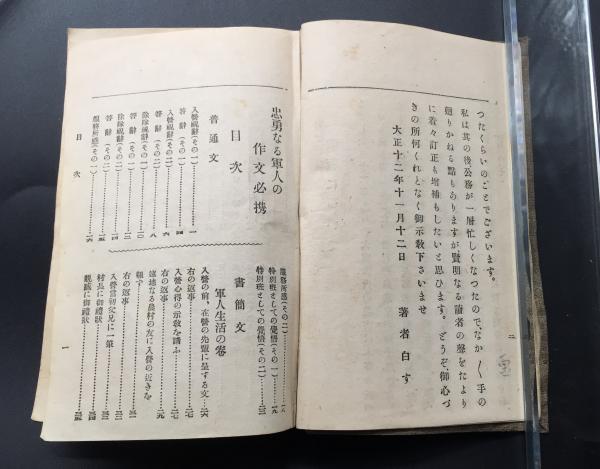 つたくらいのことでございます。
私は其の後、公務が一層忙しくなつたので、なか〳〵手の
廻りかねる點もありますが賢明なる讀者の聲をたより
に着々訂正も增補もしたいと思ひます。どうぞ、御心づ
きの所何くれとなく御示敎下さいませ
大正十二年十一月十二日
著者白す
二
忠勇なる軍人の
作文必携
目次
普通文
入營祝辭(その一)……一
答辭(その一)……四
入營祝辭(その二)……六
答辭(その二)……八
除隊祝辭(その一)……一〇
答辭(その一)……一二
除隊祝辭(その二)……
答辭(その二)……
服務所感(その一)……一六
目次
服務所感(その二)……一八
特別班としての覺悟(その一)……一九
特別班としての覺悟(その二)……
書簡文
軍人生活の卷
入營の前、在營の先輩に呈する文…二六
右の返事……二七
入營心得の示敎を請ふ……二七
右の返事……二九
遠地なる農村の友に入營の近きを
報ず……
右の返事……
入營當初父兄に一筆……
村長に御禮狀……
親戚に御禮狀……
一